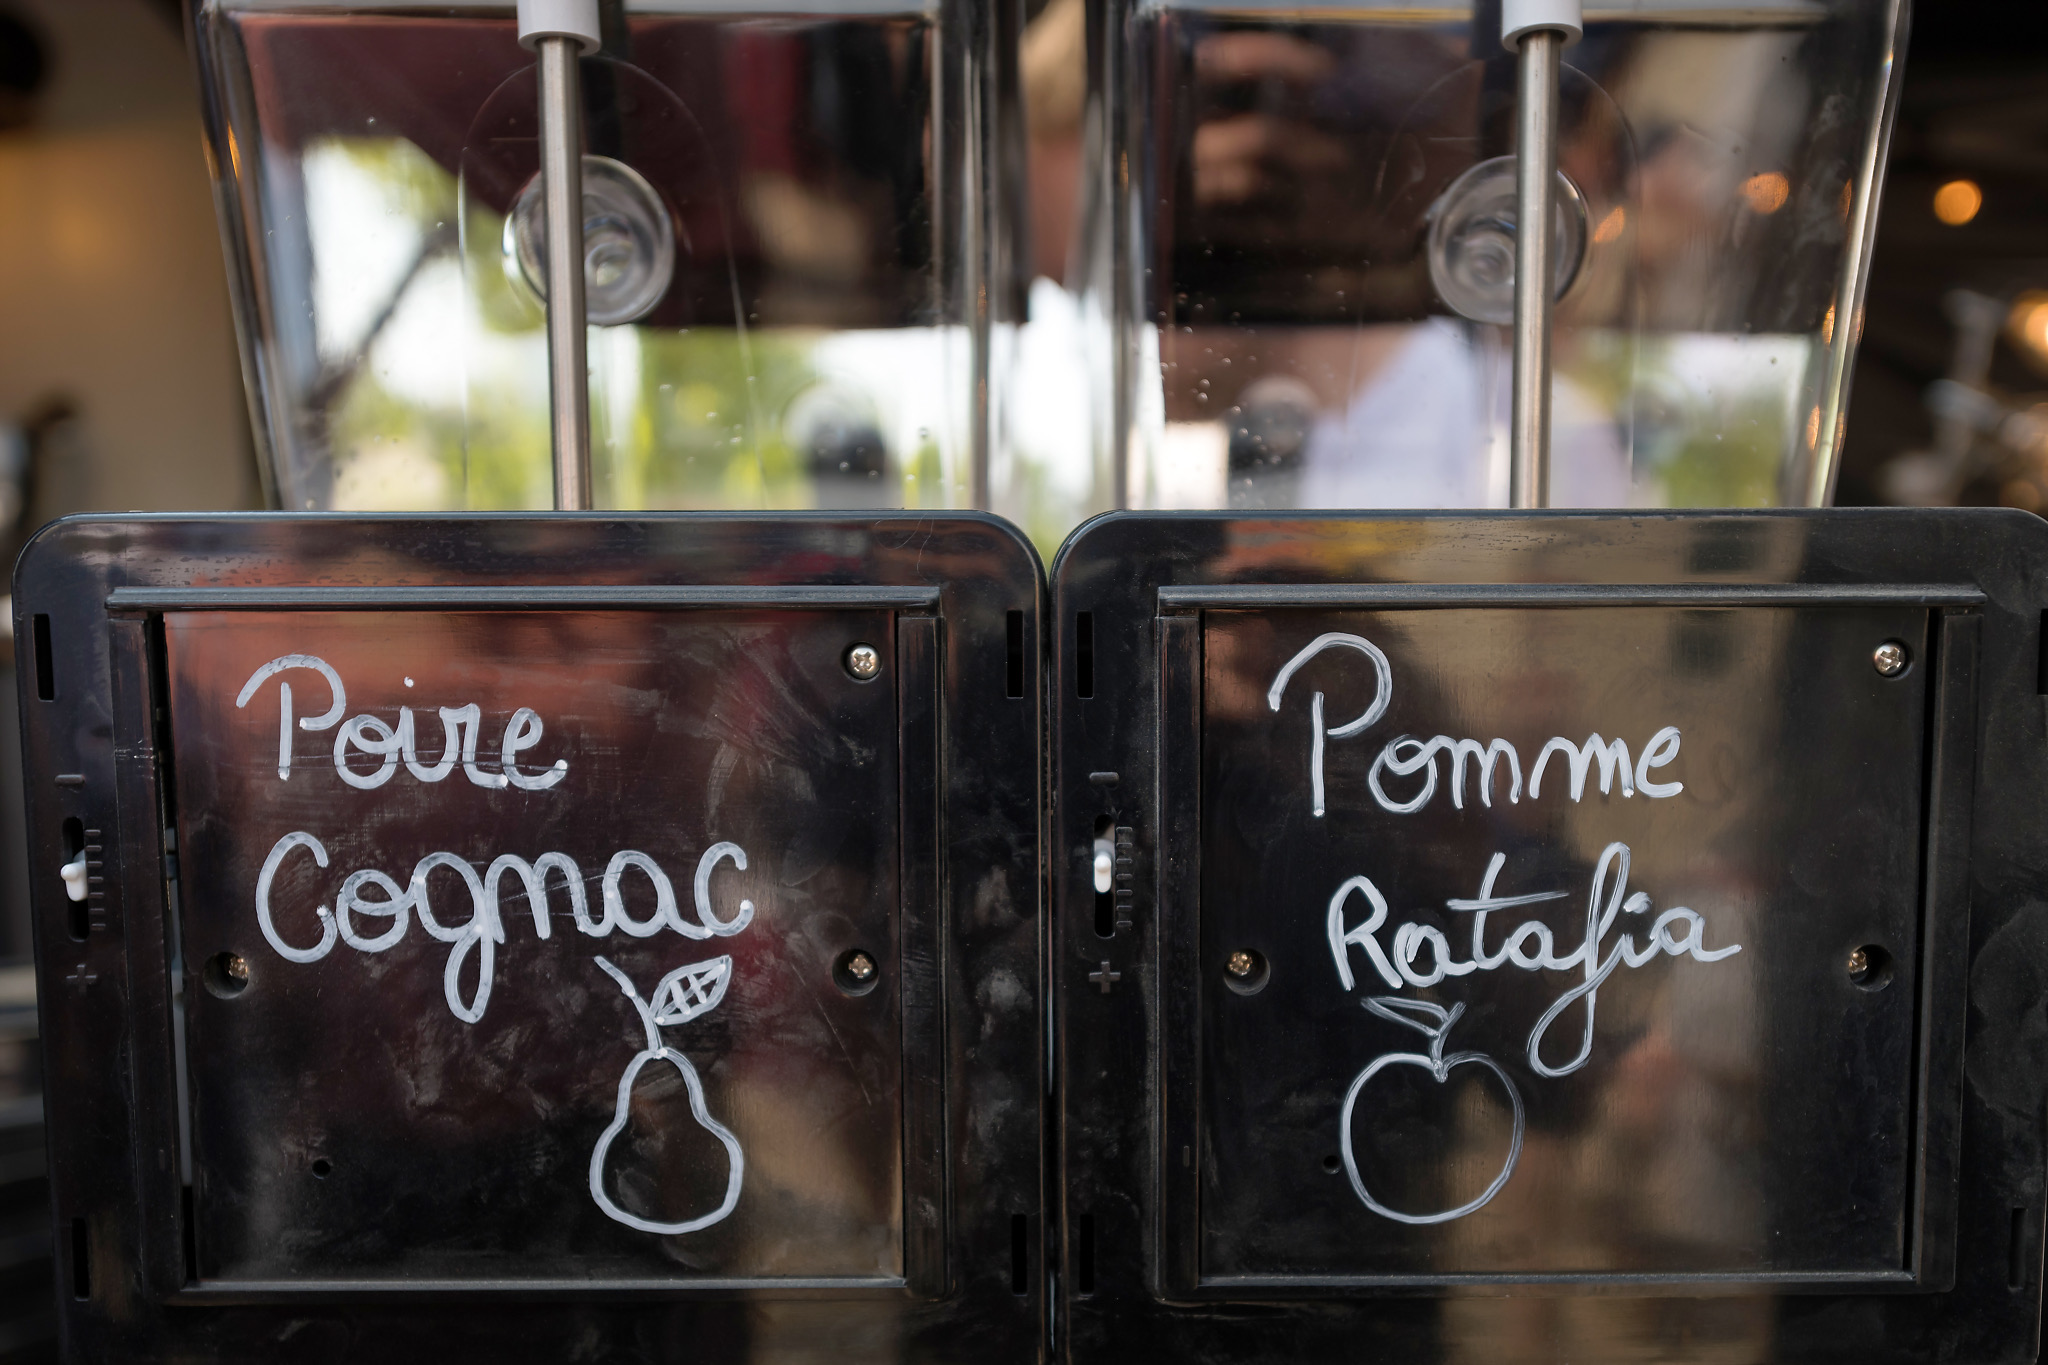 Poire
Cognac
Pomme
Ratafia